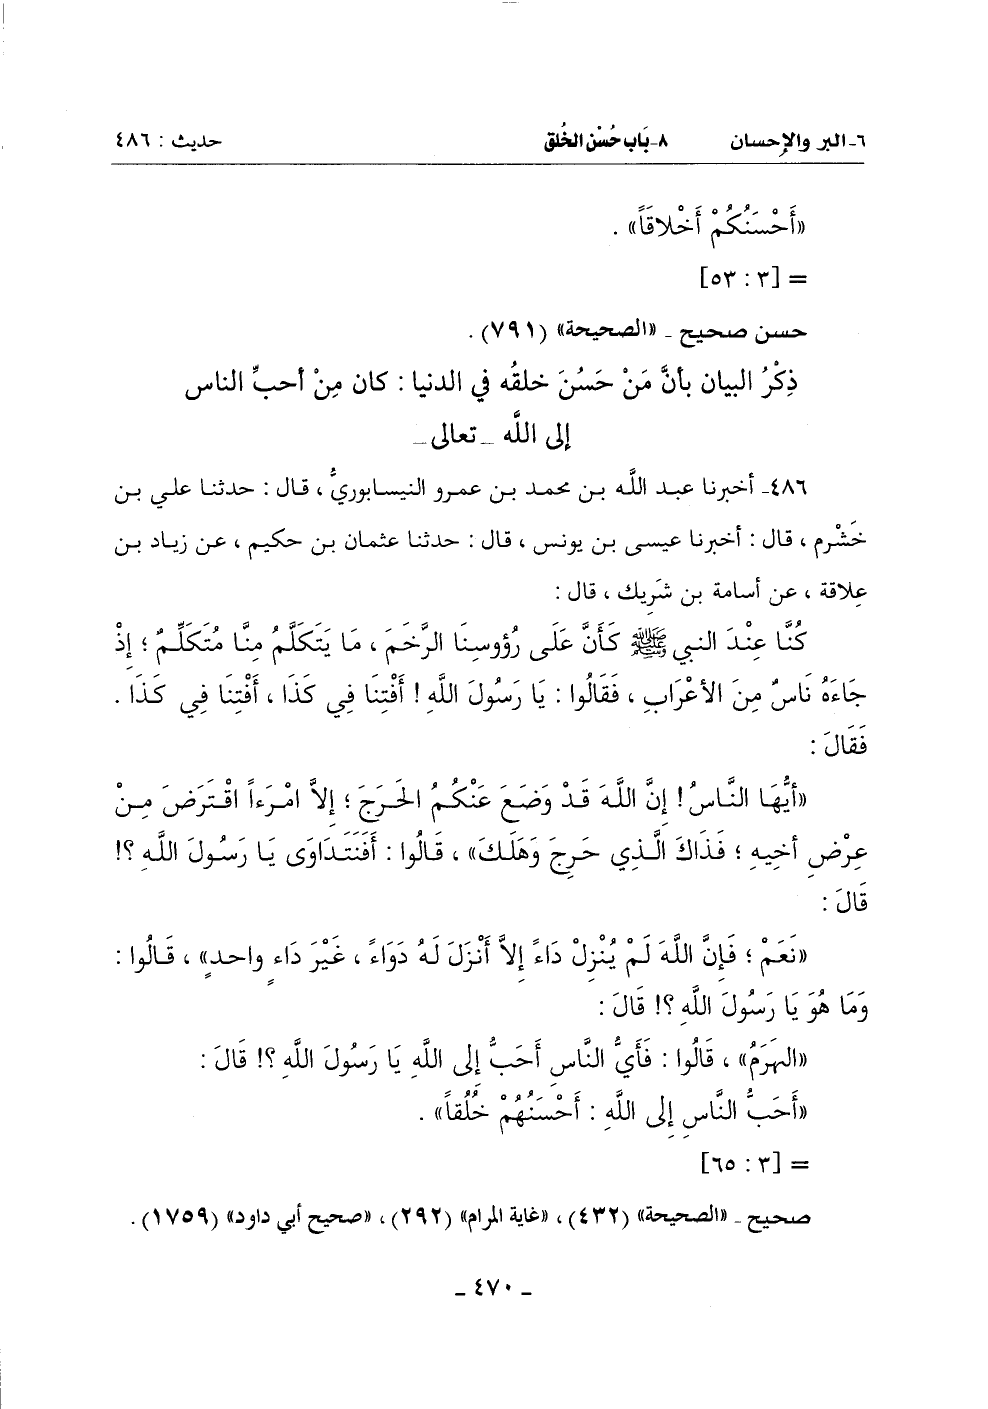 ٦-البر والإحسان ٨-بَاب حُسْن الخُلق حديث : ٤٨٦
«أَحْسَنُكُمْ أَخْلاقَاً» .
= [٣ : ٥٣]
حسن صحيح ـ «الصحيحة» (٧٩١) .
ذِكْرُ البيان بأنَّ مَنْ حَسُنَ خلقُه في الدنيا : كان مِنْ أحبِّ الناس
إلى اللَّه ـ تعالى ـ
٤٨٦- أخبرنا عبد اللَّه بن محمد بن عمرو النيسابوريُّ ، قال : حدثنا علي بن
خَشْرم ، قال : أخبرنا عيسى بن يونس ، قال : حدثنا عثمان بن حكيم ، عن زياد بن
عِلاقة ، عن أسامة بن شَرِيك ، قال :
كُنَّا عِنْدَ النبي ﷺ كَأَنَّ عَلَى رُؤوسِنَا الرَّخَمَ ، مَا يَتَكَلَّمُ مِنَّا مُتَكَلِّمٌ ؛ إِذْ
جَاءَهُ نَاسٌ مِنَ الأعْرَابِ ، فَقَالُوا : يَا رَسُولَ اللَّهِ ! أَفْتِنَا فِي كَذَا ، أَفْتِنَا فِي كَذَا .
فَقَالَ :
«أَيُّهَا النَّاسُ ! إِنَّ اللَّهَ قَدْ وَضَعَ عَنْكُمُ الحَرَجَ ؛ إِلاَّ امْرَءَاً اقْتَرَضَ مِنْ
عِرْضِ أخِيهِ ؛ فَذَاكَ الَّذِي حَرِجَ وَهَلَكَ» ، قَالُوا : أَفَنَتَدَاوَى يَا رَسُولَ اللَّهِ ؟!
قَالَ :
«نَعَمْ ؛ فَإِنَّ اللَّهَ لَمْ يُنْزِلْ دَاءً إِلاَّ أَنْزَلَ لَهُ دَوَاءً ، غَيْرَ دَاءٍ واحدٍ» ، قَالُوا :
وَمَا هُوَ يَا رَسُولَ اللَّهِ ؟! قَالَ :
«الهَرَمُ» ، قَالُوا : فَأَيُّ النَّاسِ أَحَبُّ إِلى اللَّهِ يَا رَسُولَ اللَّهِ ؟! قَالَ :
«أَحَبُّ النَّاسِ إِلى اللَّهِ : أَحْسَنُهُمْ خُلُقاً» .
= [٣ : ٦٥]
صحيح ـ «الصحيحة» (٤٣٢) ، «غاية المرام» (٢٩٢) ، «صحيح أبي داود» (١٧٥٩) .
ـ ٤٧٠ ـ